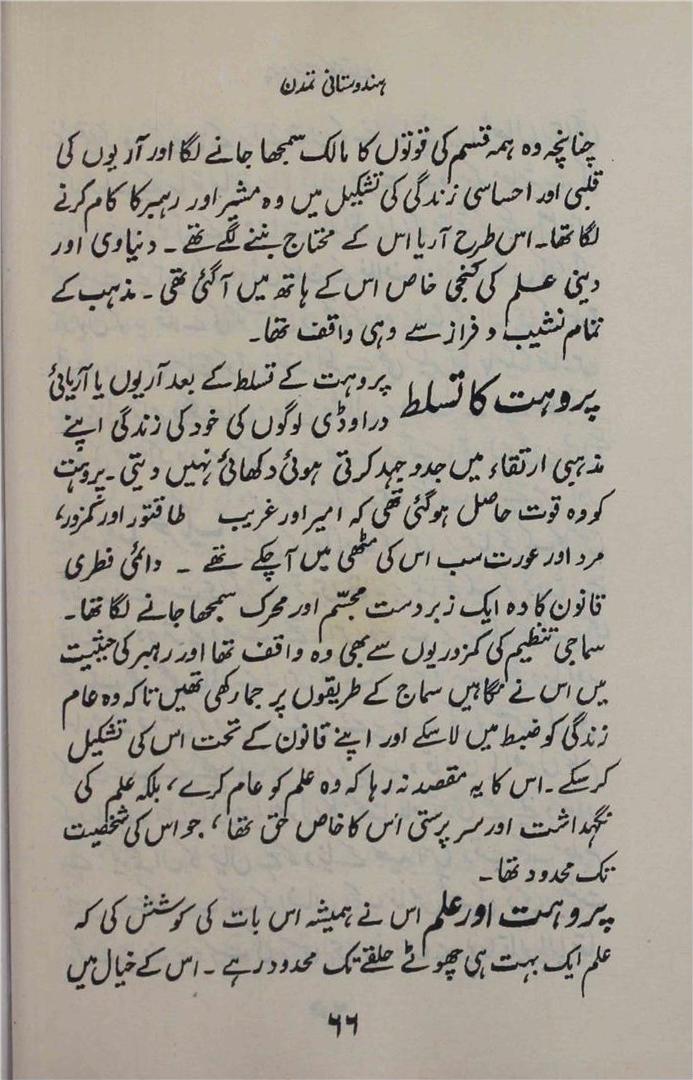 ہندوستانی تمدن
چنانچہ وہ ہمہ قسم کی قوتوں کا مالک سمجھا جانے لگا اور آریوں کی
قلبی اور احساسی زندگی کی تشکیل میں وہ مشیر اور رہبر کا کام کرنے
لگا تھا۔ اس طرح آریا اس کے محتاج بننے لگے تھے ۔ دنیاوی اور
دینی علم کی کنجی خاص اس کے ہاتھ میں آگئی تھی ۔ مذہب کے
تمام نشیب و فراز سے وہی واقف تھا۔
پروہت کا تسلط پروہت کے تسلط کے بعد آریوں یا آریائی
دراوڈی لوگوں کی خود کی زندگی اپنے
مذہبی ارتقاء میں جدوجہد کرتی ہوئی دکھائی نہیں دیتی ۔ پروہت
کو وہ قوت حاصل ہوگئی تھی کہ امیر اور غریب طاقتور اور کمزور،
مرد اور عورت سب اس کی مٹھی میں آچکے تھے ۔ دائمی فطری
قانون کا وہ ایک زبردست مجسّم اور محرک سمجھا جانے لگا تھا۔
سماجی تنظیم کی کمزوریوں سے بھی وہ واقف تھا اور رہبر کی حیثیت
میں اس نے نگاہیں سماج کے طریقوں پر جما رکھی تھیں تاکہ وہ عام
زندگی کو ضبط میں لاسکے اور اپنے قانون کے تحت اس کی تشکیل
کرسکے ۔ اس کا یہ مقصد نہ رہا کہ وہ علم کو عام کرے، بلکہ علم کی
نگہداشت اور سرپرستی اس کا خاص حق تھا، جو اس کی شخصیت
تک محدود تھا۔
پروہت اور علم اس نے ہمیشہ اس بات کی کوشش کی کہ
علم ایک بہت ہی چھوٹے حلقے تک محدود رہے ۔ اس کے خیال میں
۶۶